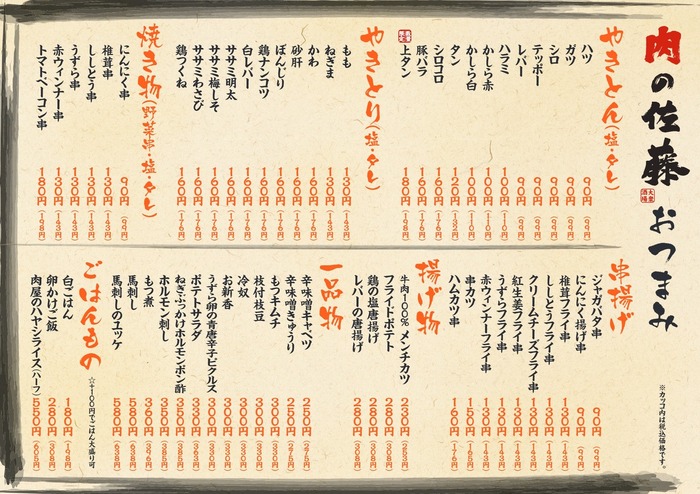 肉の佐藤 おつまみ
大衆酒場
※カッコ内は税込価格です。
やきとん(塩・タレ)
ハツ 90円(99円)
ガツ 90円(99円)
シロ 90円(99円)
テッポー 90円(99円)
レバー 90円(99円)
ハラミ 100円(110円)
かしら赤 100円(110円)
かしら白 100円(110円)
タン 120円(132円)
シロコロ 160円(176円)
豚バラ 160円(176円)
上タン 180円(198円)
やきとり(塩・タレ)
もも 130円(143円)
ねぎま 130円(143円)
かわ 160円(176円)
砂肝 160円(176円)
ぼんじり 160円(176円)
鶏ナンコツ 160円(176円)
白レバー 160円(176円)
ササミ明太 160円(176円)
ササミ梅しそ 160円(176円)
ササミわさび 160円(176円)
鶏つくね 160円(176円)
焼き物(野菜串・塩・タレ)
にんにく串 90円(99円)
椎茸串 130円(143円)
ししとう串 130円(143円)
うずら串 130円(143円)
赤ウィンナー串 130円(143円)
トマトベーコン串 180円(198円)
串揚げ
ジャガバタ串 90円(99円)
にんにく揚げ串 90円(99円)
椎茸フライ串 130円(143円)
ししとうフライ串 130円(143円)
クリームチーズフライ串 130円(143円)
紅生姜フライ串 130円(143円)
うずらフライ串 130円(143円)
赤ウィンナーフライ串 130円(143円)
串カツ 150円(165円)
ハムカツ串 160円(176円)
揚げ物
牛肉100%メンチカツ 230円(253円)
フライドポテト 280円(308円)
鶏の塩唐揚げ 280円(308円)
レバーの唐揚げ 280円(308円)
一品物
辛味噌キャベツ 250円(275円)
辛味噌きゅうり 250円(275円)
もつキムチ 300円(330円)
枝付枝豆 300円(330円)
冷奴 300円(330円)
お新香 300円(330円)
うずら卵の青唐辛子ピクルス 300円(330円)
ポテトサラダ 330円(363円)
ねぎぶっかけホルモンポン酢 350円(385円)
ホルモン刺し 350円(385円)
もつ煮 360円(396円)
馬刺し 580円(638円)
馬刺しのユッケ 580円(638円)
ごはんもの
☆+100円でごはん大盛り可
白ごはん 180円(198円)
卵かけご飯 280円(308円)
肉屋のハヤシライス(ハーフ) 550円(605円)